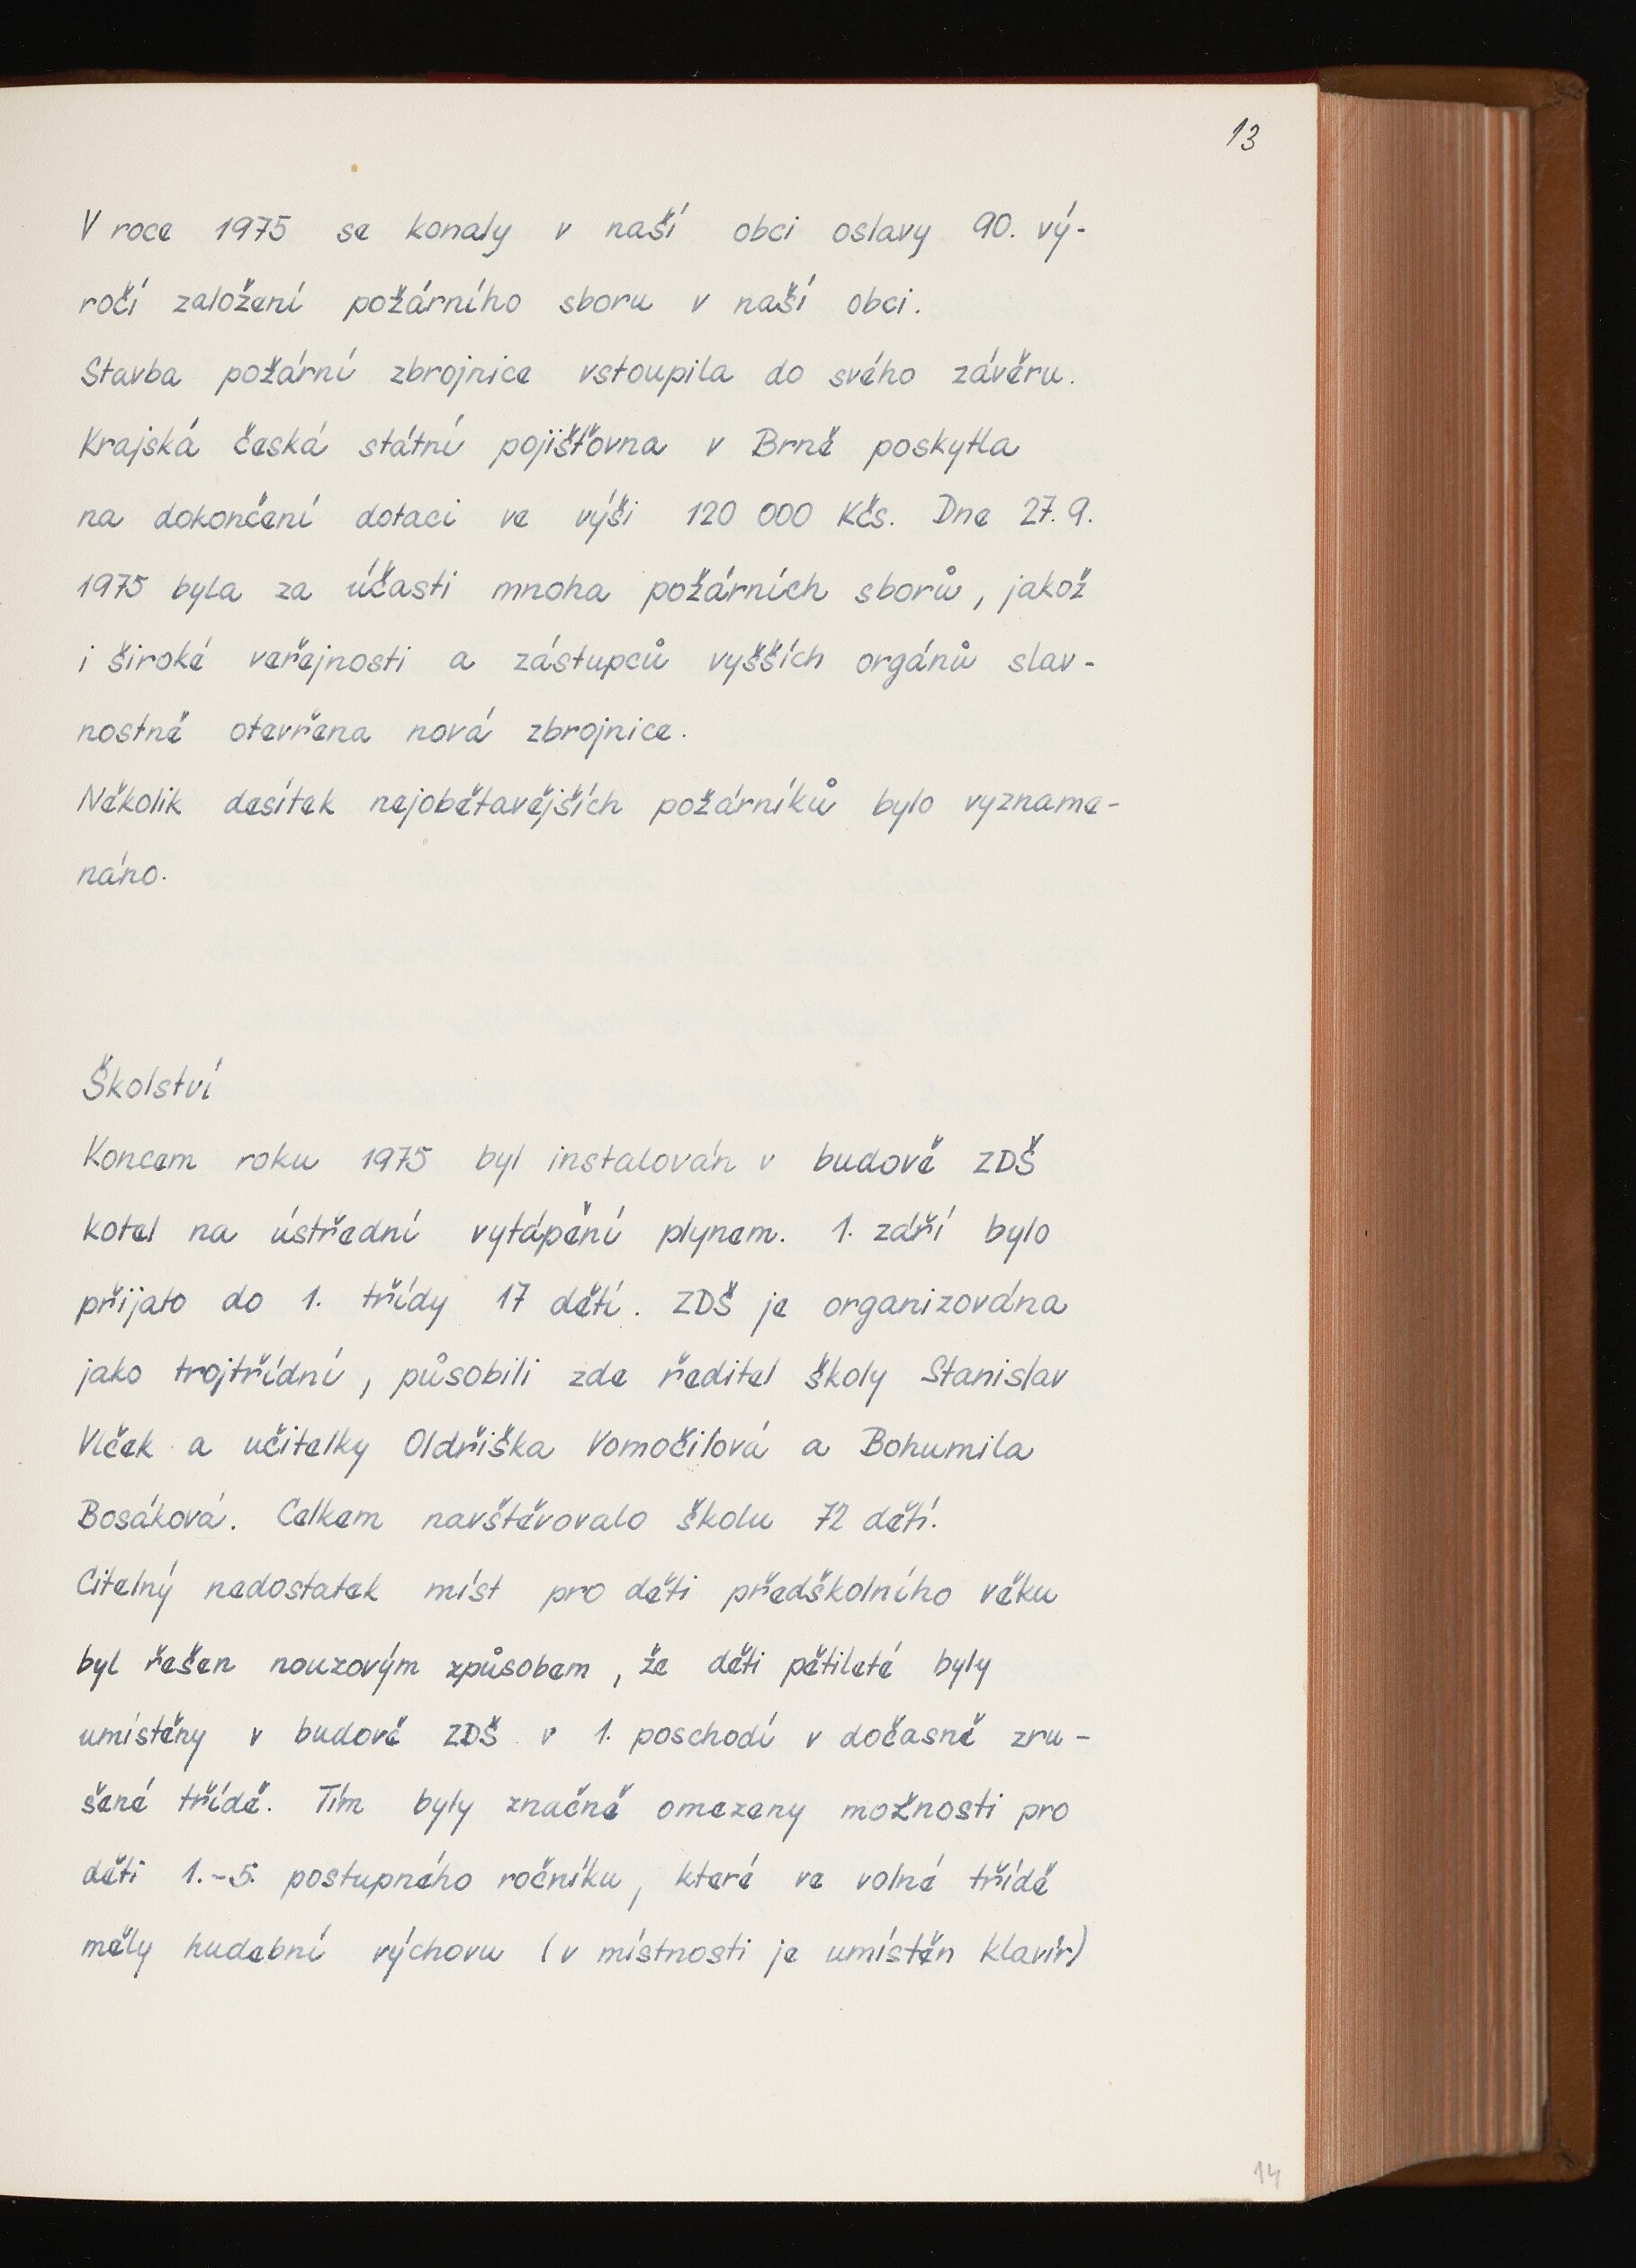 13
V roce 1975 se konaly v naší obci oslavy 90. vý-
ročí založení požárního sboru v naší obci.
Stavba požární zbrojnice vstoupila do svého závěru.
Krajská česká státní pojišťovna v Brně poskytla
na dokončení dotaci ve výši 120 000 Kčs. Dne 27. 9.
1975 byla za účasti mnoha požárních sborů, jakož
i široké veřejnosti a zástupců vyšších orgánů slav-
nostně otevřena nová zbrojnice.
Několik desítek nejobětavějších požárníků bylo vyzname-
náno.
Školství
Koncem roku 1975 byl instalován v budově ZDŠ
kotel na ústřední vytápění plynem. 1. září bylo
přijato do 1. třídy 17 dětí. ZDŠ je organizována
jako trojtřídní, působili zde ředitel školy Stanislav
Vlček a učitelky Oldřiška Vomočilová a Bohumila
Bosáková. Celkem navštěvovalo školu 72 dětí.
Citelný nedostatek míst pro děti předškolního věku
byl řešen nouzovým způsobem, že děti pětileté byly
umístěny v budově ZDŠ v 1. poschodí v dočasně zru-
šené třídě. Tím byly značně omezeny možnosti pro
děti 1.-5. postupného ročníku, které ve volné třídě
měly hudební výchovu (v místnosti je umístěn klavír)
14